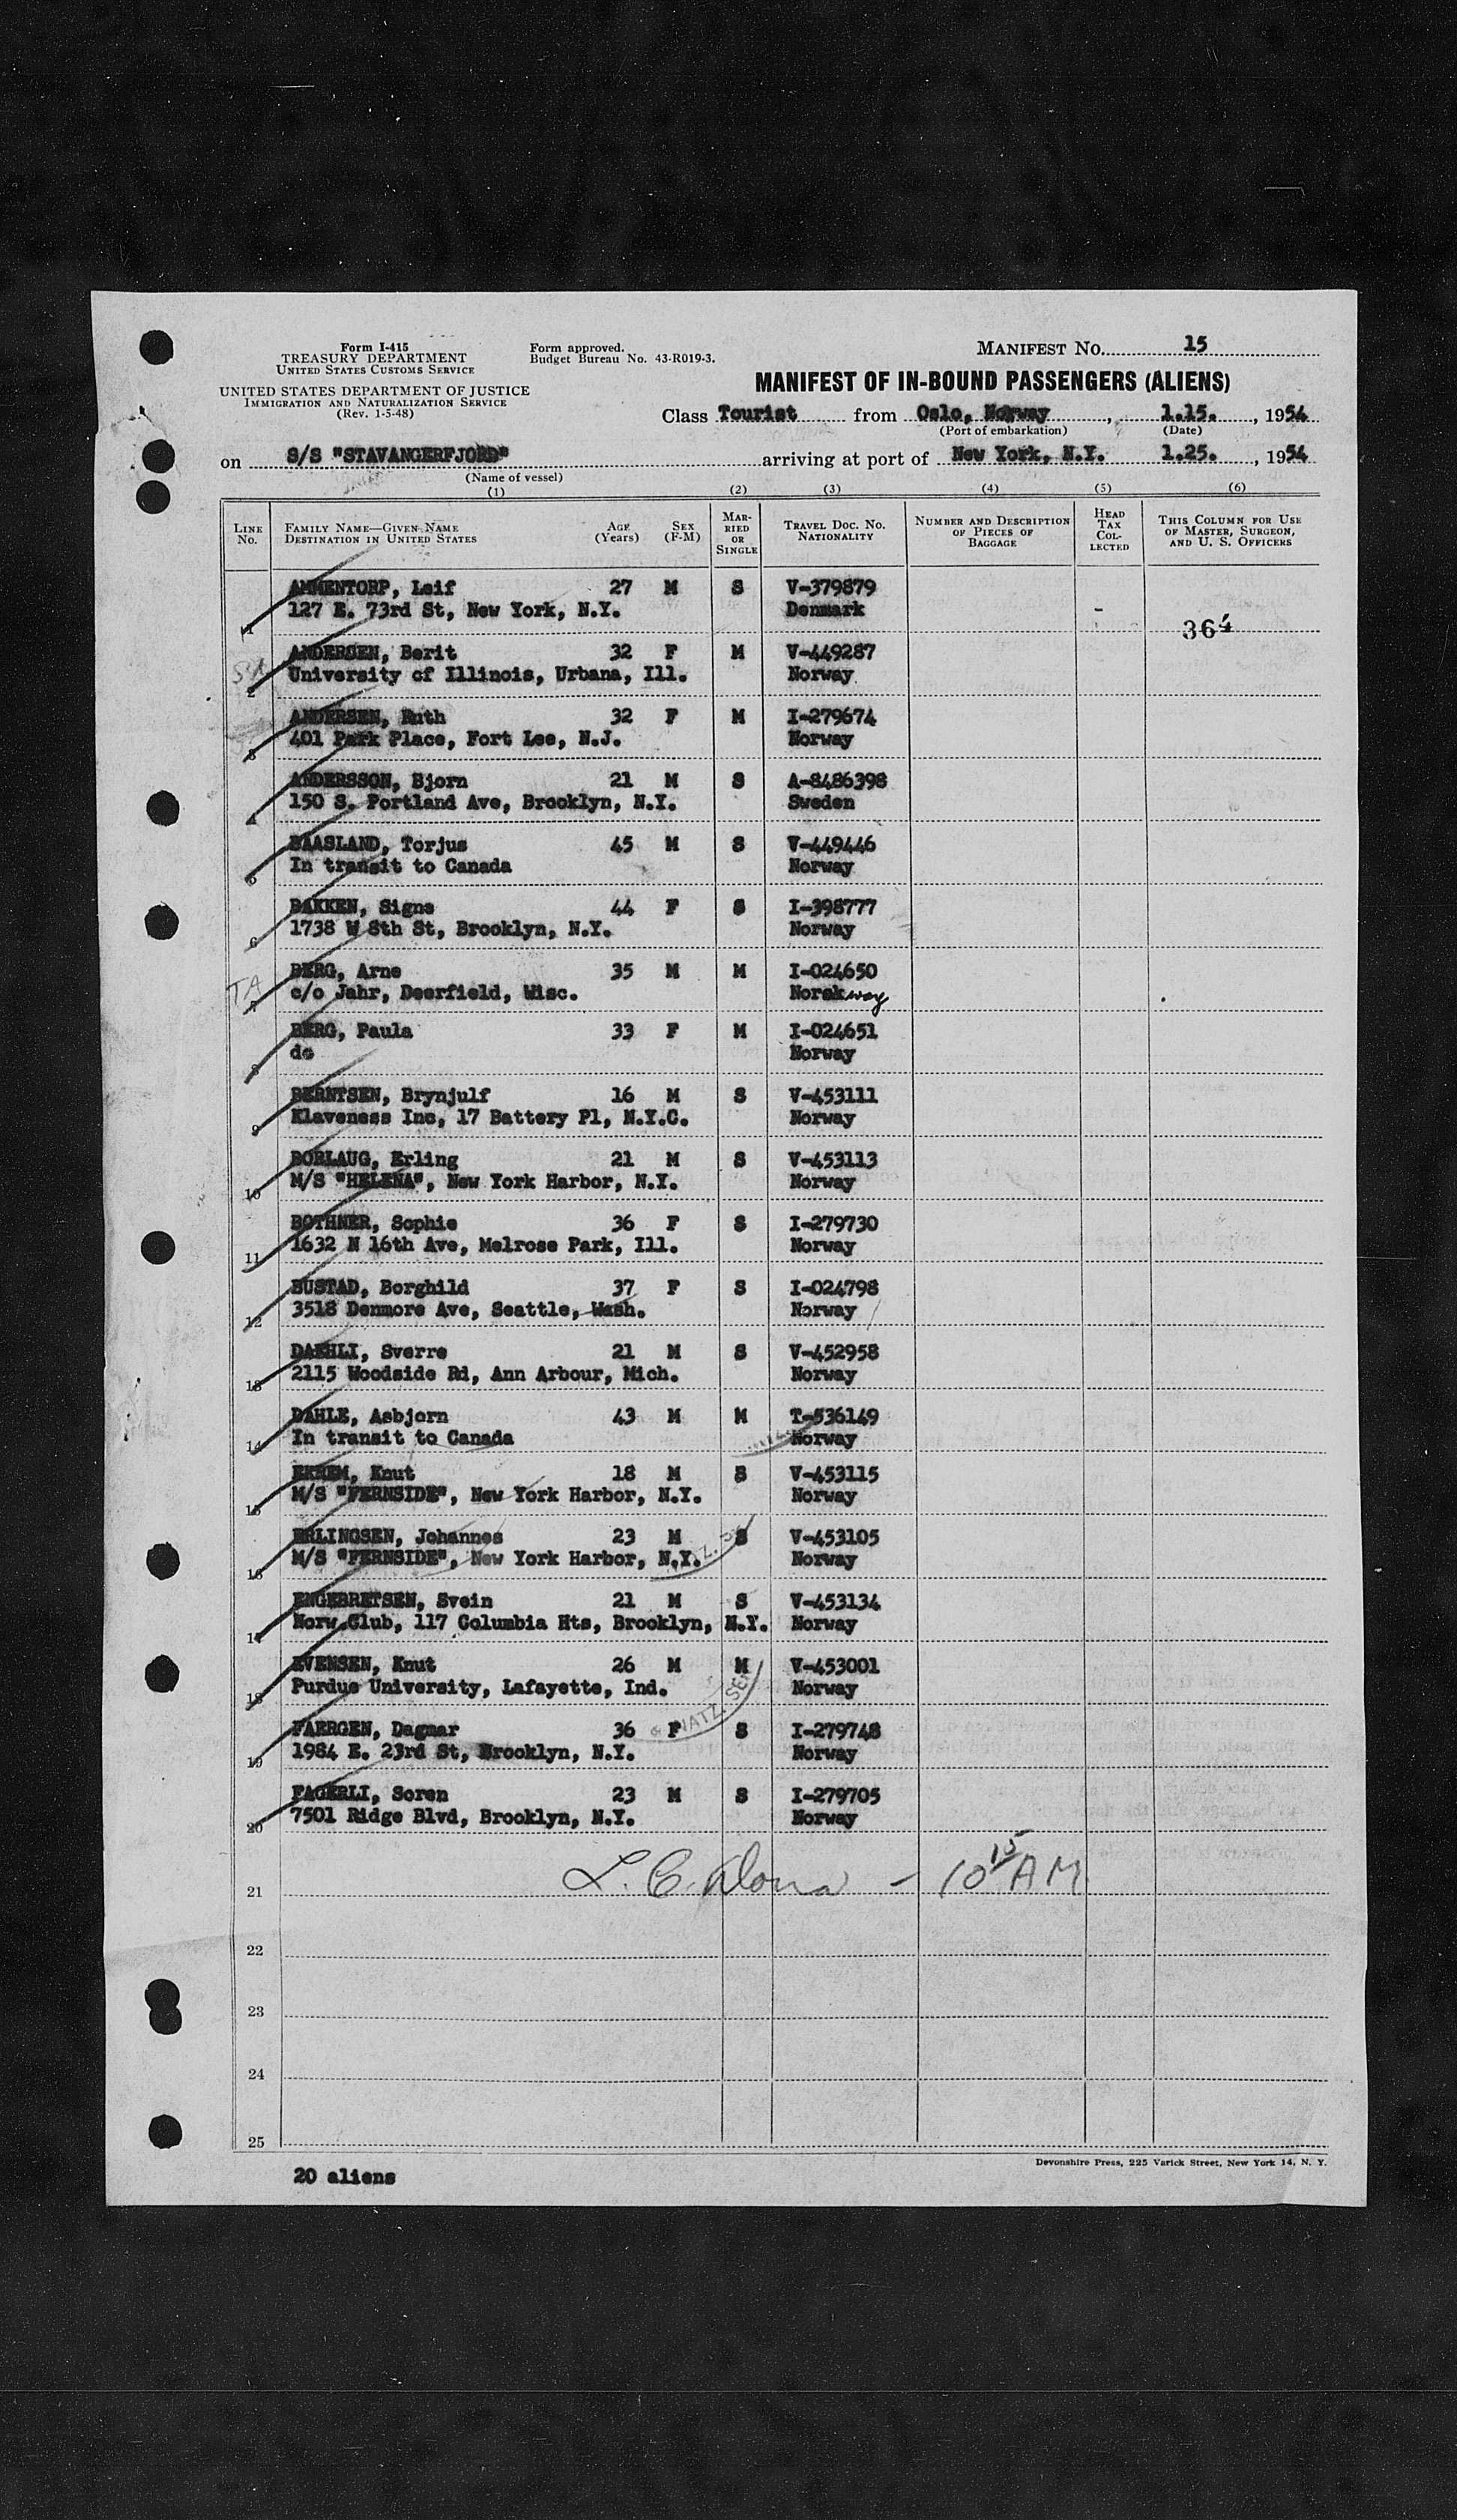 Form I-415
TREASURY DEPARTMENT
UNITED STATES CUSTOMS SERVICE
UNITED STATES DEPARTMENT OF JUSTICE
IMMIGRATION AND NATURALIZATION SERVICE
(Rev. 1-5-48)
Form approved.
Budget Bureau No. 43-R019-3.
MANIFEST NO. 15
MANIFEST OF IN-BOUND PASSENGERS (ALIENS)
Class Tourist from Oslo, Norway, 1.15., 1954
(Port of embarkation) (Date)
on S/S "STAVANGERFJORD" arriving at port of New York, N.Y. 1.25., 1954
(Name of vessel)
(1) (2) (3) (4) (5) (6)
LINE No. FAMILY NAME—GIVEN NAME DESTINATION IN UNITED STATES AGE (Years) SEX (F-M) MARRIED OR SINGLE TRAVEL DOC. NO. NATIONALITY NUMBER AND DESCRIPTION OF PIECES OF BAGGAGE HEAD TAX COLLECTED THIS COLUMN FOR USE OF MASTER, SURGEON, AND U. S. OFFICERS
AMMENTORP, Leif 27 M S V-379879
1 127 E. 73rd St, New York, N.Y. Denmark - 364
ANDERSEN, Berit 32 F M V-449287
2 University of Illinois, Urbana, Ill. Norway
ANDERSEN, Ruth 32 F M I-279674
3 401 Park Place, Fort Lee, N.J. Norway
ANDERSSON, Bjorn 21 M S A-8486398
4 150 S. Portland Ave, Brooklyn, N.Y. Sweden
BAASLAND, Torjus 45 M S V-449446
5 In transit to Canada Norway
BAKKEN, Signe 44 F S I-398777
6 1738 W 8th St, Brooklyn, N.Y. Norway
BERG, Arne 35 M M I-024650
TA 7 c/o Jahr, Deerfield, Wisc. Norskway
BERG, Paula 33 F M I-024651
8 do Norway
BERNTSEN, Brynjulf 16 M S V-453111
9 Klaveness Inc, 17 Battery Pl, N.Y.C. Norway
BORLAUG, Erling 21 M S V-453113
10 M/S "HELENA", New York Harbor, N.Y. Norway
BOTHNER, Sophie 36 F S I-279730
11 1632 N 16th Ave, Melrose Park, Ill. Norway
BUSTAD, Borghild 37 F S I-024798
12 3518 Denmore Ave, Seattle, Wash. Norway
DAEHLI, Sverre 21 M S V-452958
13 2115 Woodside Rd, Ann Arbour, Mich. Norway
DAHLE, Asbjorn 43 M M T-536149
14 In transit to Canada Norway
EKREM, Knut 18 M S V-453115
15 M/S "FERNSIDE", New York Harbor, N.Y. Norway
ERLINGSEN, Johannes 23 M S V-453105
16 M/S "FERNSIDE", New York Harbor, N.Y. Norway
ENGEBRETSEN, Svein 21 M S V-453134
17 Norw.Club, 117 Columbia Hts, Brooklyn, N.Y. Norway
EVENSEN, Knut 26 M M V-453001
18 Purdue University, Lafayette, Ind. Norway
FAERGEN, Dagmar 36 F S I-279748
19 1984 E. 23rd St, Brooklyn, N.Y. Norway
FAGERLI, Soren 23 M S I-279705
20 7501 Ridge Blvd, Brooklyn, N.Y. Norway
21 L. C. - 10 15 AM
22
23
24
25
Devonshire Press, 225 Varick Street, New York 14, N. Y.
20 aliens